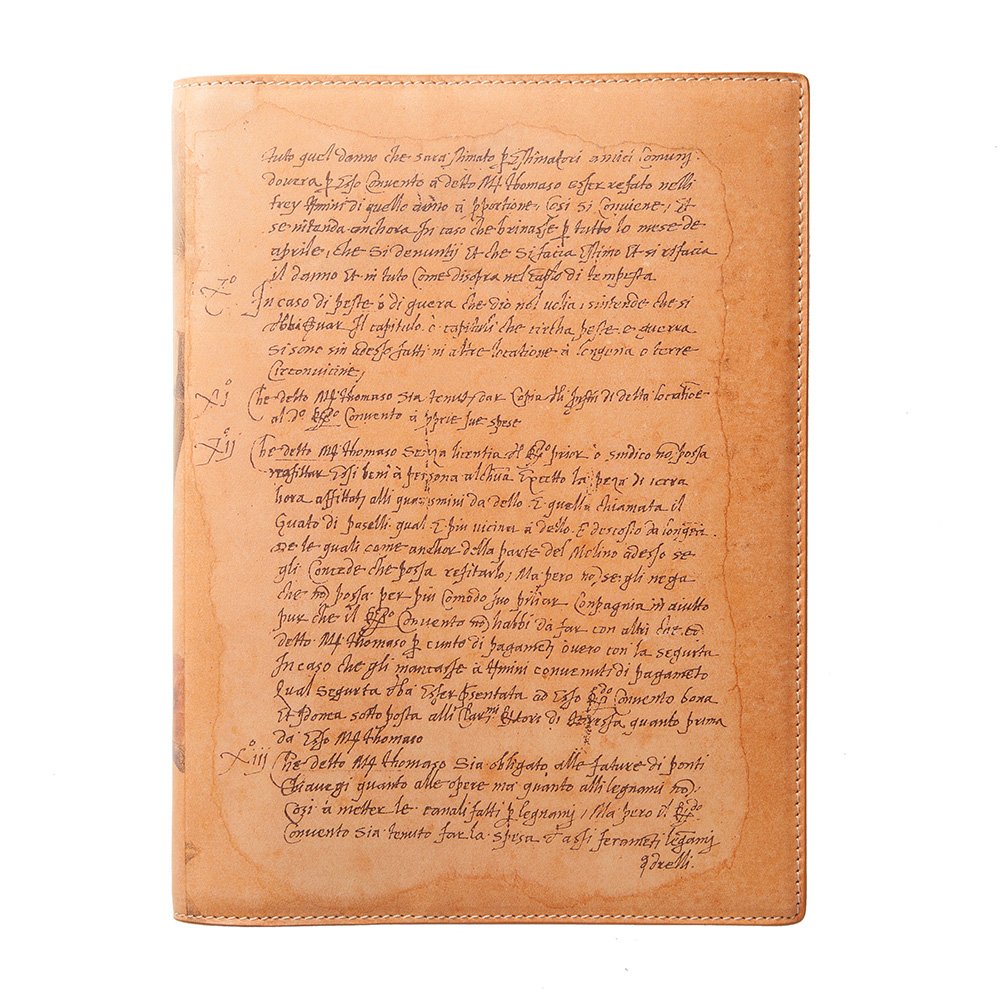 tuto quel danno che sara stimato p Estimatori amici Comunj
dovera p Esso Convento à detto Mr thomaso esser refato nelli
trey tmini di quello anno à pportione, Cosi si Conviene, Et
se intenda anchora In caso che brinasse p tutto lo mese de
aprile, che si denuntij Et che si facia Estimo Et si refacia
il danno Et in tuto Come disopra nel caso di tempesta
X° In caso di peste ò di guera che dio nol volia, sintende che si
Il capitulo è capituli che circha peste e guerra
si sono sin adesso fatti in altre locatione à longena o terre
Circonvicine,
XI° Che detto Mr thomaso sia tenut dar Copia di detta locatioe
al Convento à pprie sue spese
XIJ° Che detto Mr thomaso senza licentia prior ò sindico no possa
Essi beni à persona alchuna Excetto la peza di terra
hora affittata alli da dello E quella chiamata il
Guato di paselli qual E piu vicina à dello E descosto da longena
De le quali come anchor della parte del Molino adesso se
gli Concede che possa refitarlo, Ma pero no se gli nega
che no possa per piu Comodo suo pilliar Conpagnia in aiutto
pur che il Convento no habbi da far con altri che co
detto Mr thomaso p cunto di pagameti overo con la segurta
In caso che gli mancasse à tmini convenuti di pagameto
Qual segurta Esser psentata ad Esso Convento bona
Et Idonea sotto posta alli quanto prima
da Esso Mr thomaso
Xiij° Che detto Mr thomaso sia obligato alle fature di ponti
Chiavegi quanto alle opere ma quanto alli legnami no
Cosi à metter le canali fatti p legnami, Ma pero il
Convento sia tenuto far la spesa ferometi legamj
qdrelli.